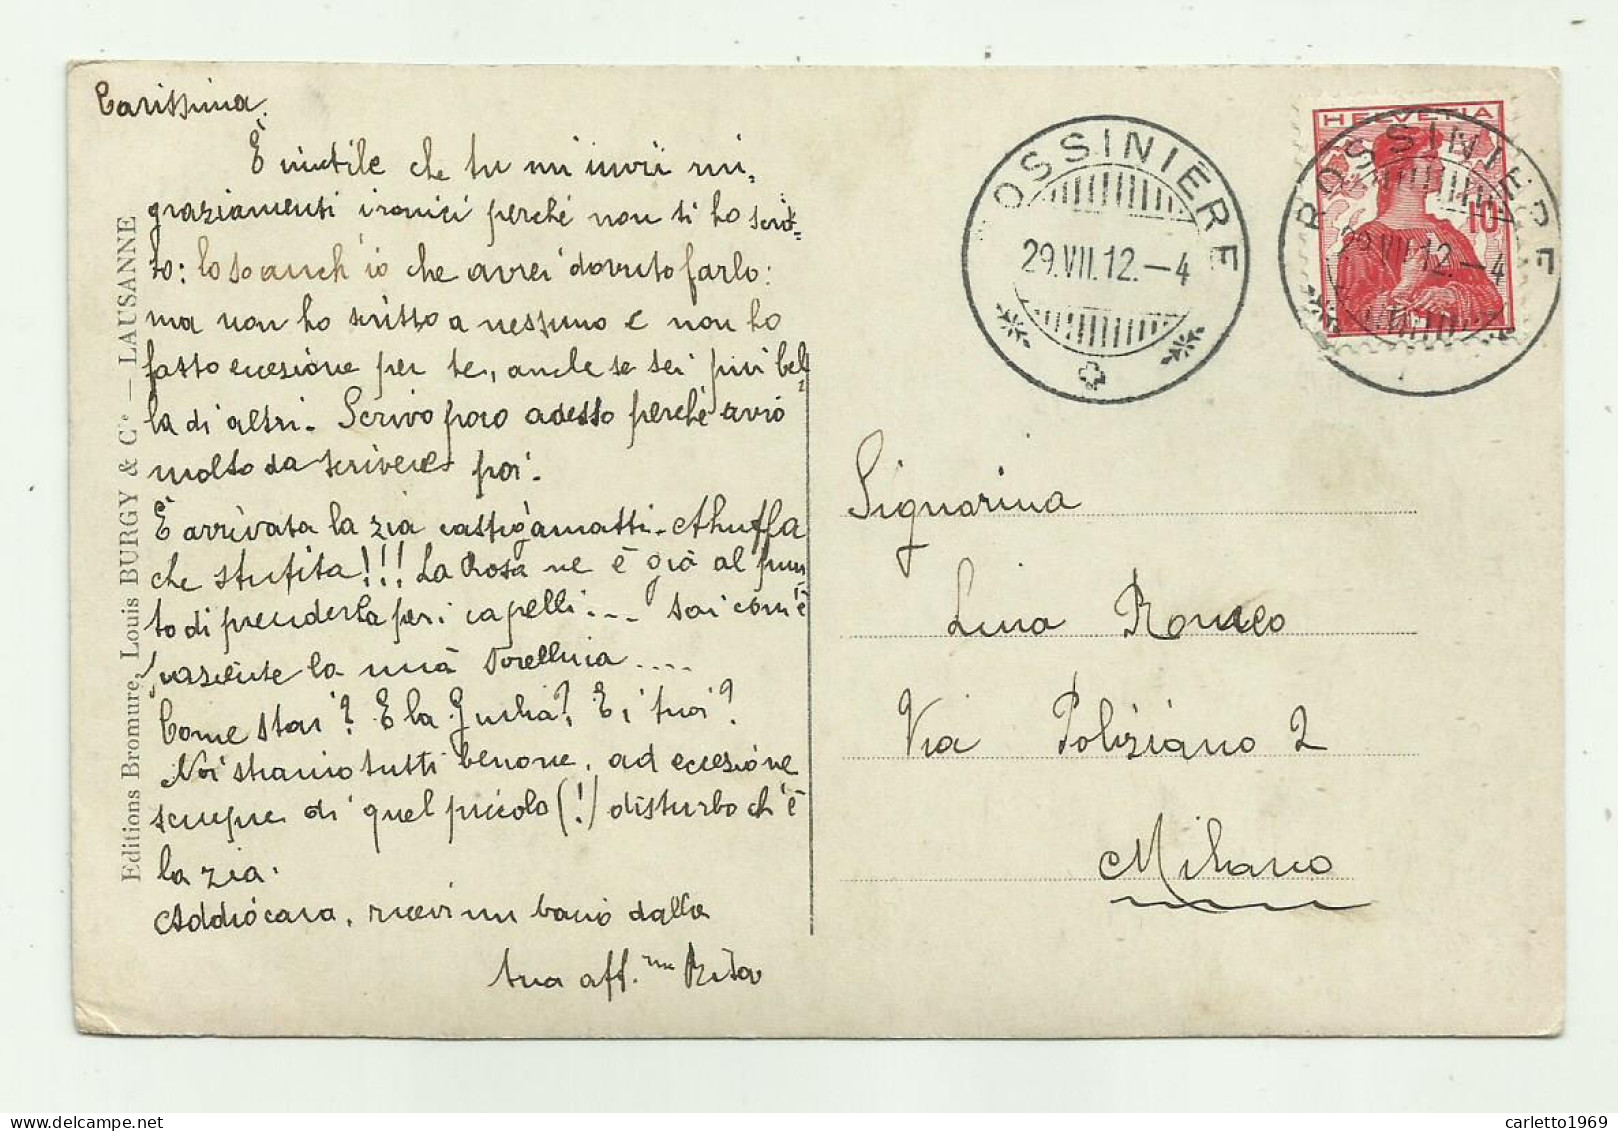 Carissima.
È inutile che tu mi invii rin-
graziamenti ironici perchè non ti ho scrit-
to: lo so anch'io che avrei dovuto farlo:
ma non ho scritto a nessuno e non ho
fatto eccezione per te, anche se sei più bel-
la di altri. Scrivo poco adesso perchè avrò
molto da scrivere poi.
È arrivata la zia castigamatti. Ahuffa
che stufita!!! La Rosa ne è già al pun-
to di prenderla per i capelli.... sai com'è
paziente la mia sorellina....
Come stai? E la Giulia? E i tuoi?
Noi stiamo tutti benone, ad eccezione
sempre di quel piccolo (!) disturbo ch'è
la zia.
Addio cara, ricevi un bacio dalla
tua aff.ma Rita
Editions Bromure, Louis BURGY & Cie — LAUSANNE
ROSSINIÈRE
29.VII.12.—4
HELVETIA
10
ROSSINIÈRE
29.VII.12.—4
Signorina
Lina Romeo
Via Poliziano 2
Milano
carletto1969